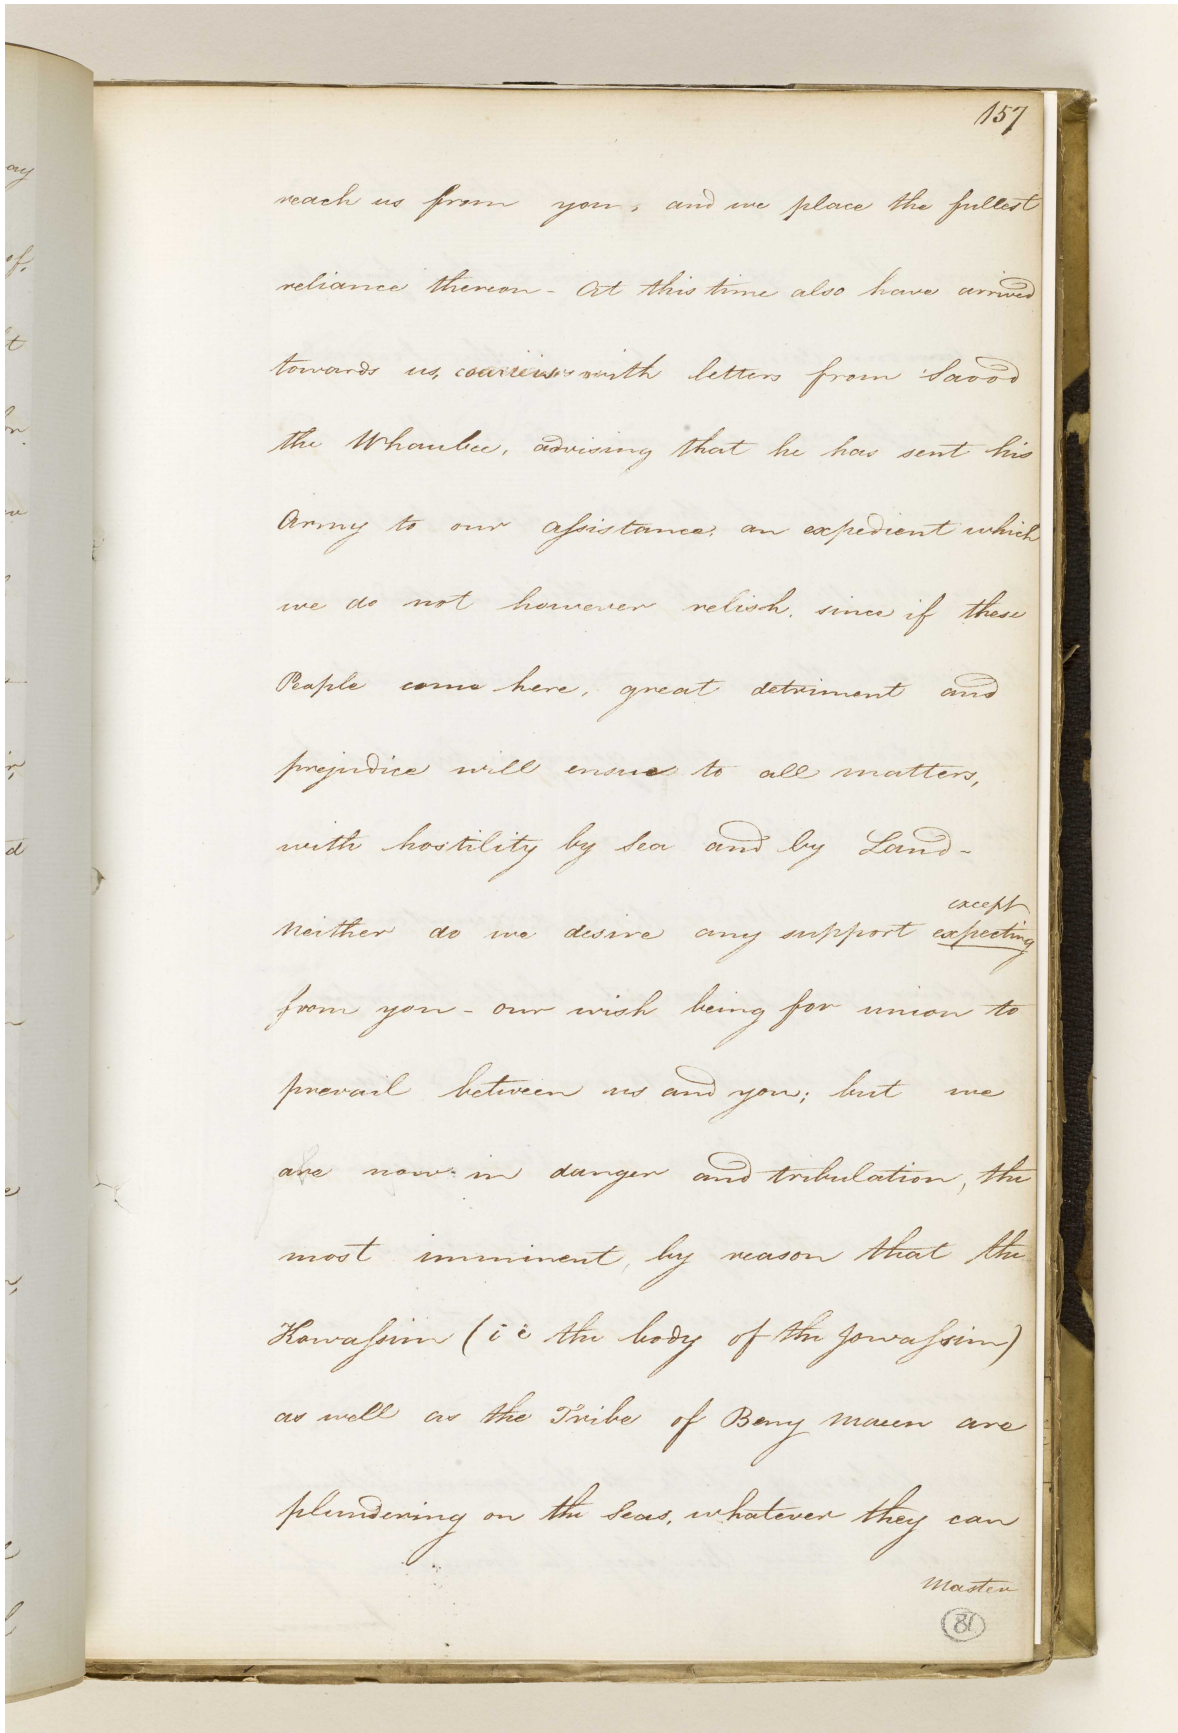 157
reach us from you, and we place the fullest
reliance thereon - At this time also have arrived
towards us, couriers with letters from Saood
the Whaubee, advising that he has sent his
Army to our assistance, an expedient which
we do not however relish. since if these
People come here, great detriment and
prejudice will ensue to all matters,
with hostility by Sea and by Land -
except
neither do we desire any support expecting
from you - our wish being for union to
prevail between us and you; but we
are now in danger and tribulation, the
most imminent, by reason that the
Kowassim (i e the body of the Jowassim)
as well as the Tribe of Beny Maeen are
plundering on the Seas, whatever they can
Master
81